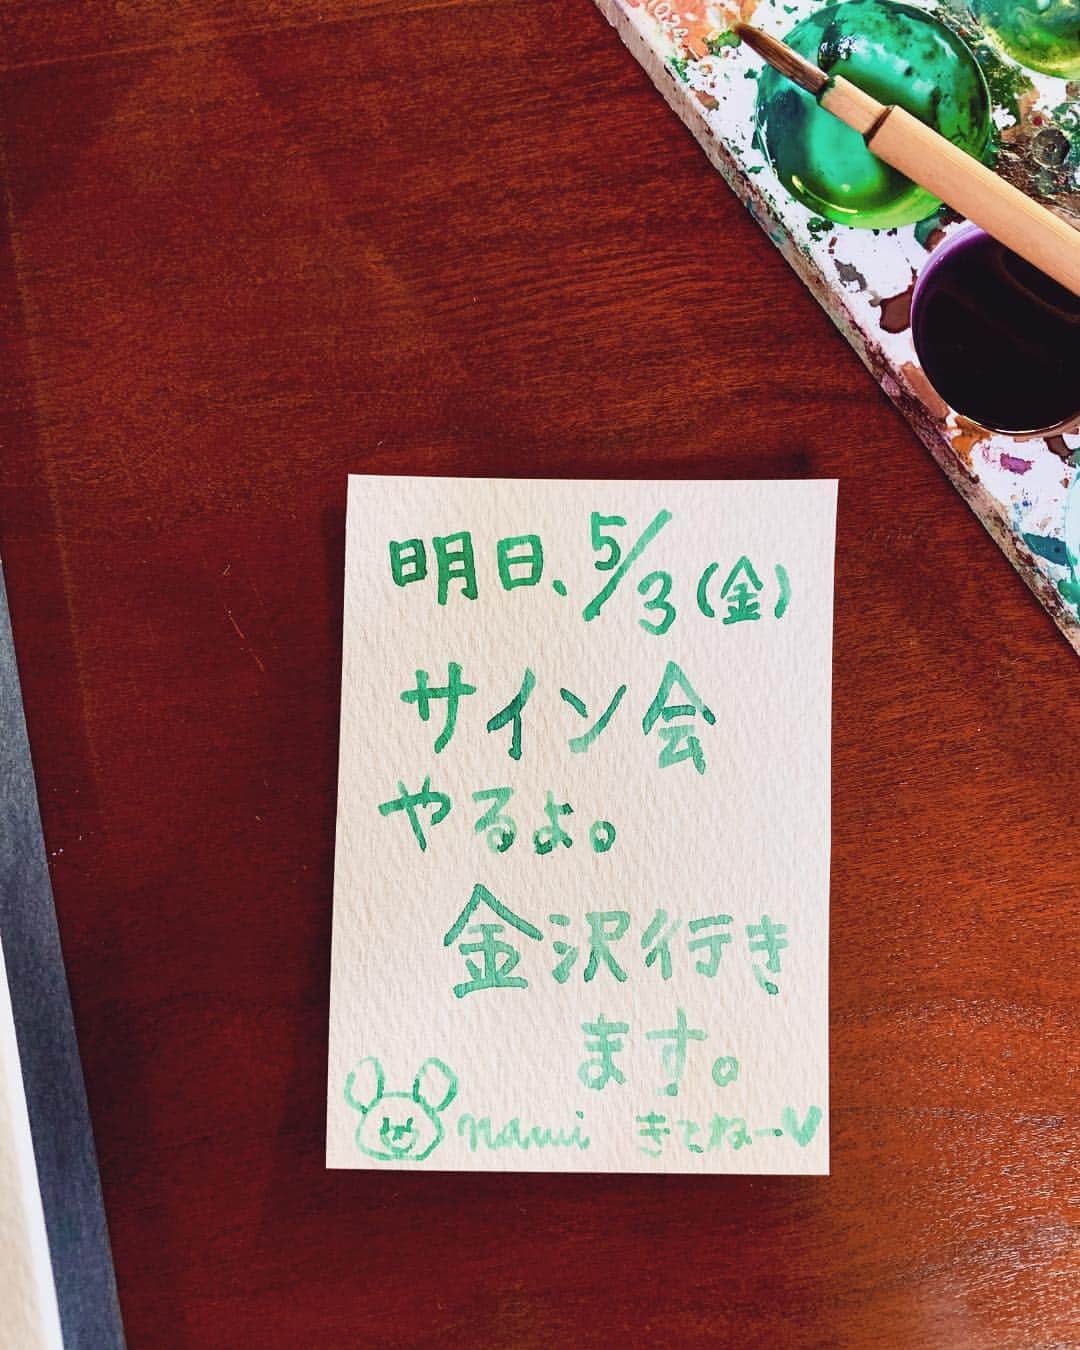 明日、5/3(金)
サイン会
やるよ。
金沢行き
ます。
nami きてねー♥